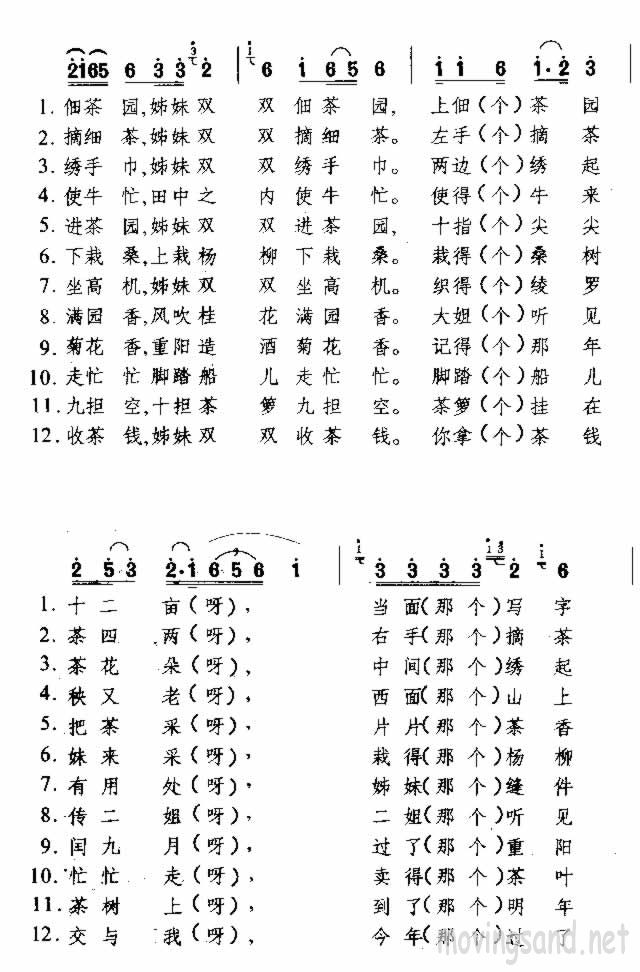 2165 6 3 3 2 | 6 1 6 5 6 | 1 1 6 1·2 3
1. 佃茶 园,姊妹 双 双 佃 茶 园, 上佃(个)茶 园
2. 摘细 茶,姊妹 双 双 摘 细 茶。 左手(个)摘 茶
3. 绣手 巾,姊妹 双 双 绣 手 巾。 两边(个)绣 起
4. 使牛 忙,田中 之 内 使 牛 忙。 使得(个)牛 来
5. 进茶 园,姊妹 双 双 进 茶 园, 十指(个)尖 尖
6. 下栽 桑,上栽 杨 柳 下 栽 桑。 栽得(个)桑 树
7. 坐高 机,姊妹 双 双 坐 高 机。 织得(个)绫 罗
8. 满园 香,风吹 桂 花 满 园 香。 大姐(个)听 见
9. 菊花 香,重阳 造 酒 菊 花 香。 记得(个)那 年
10. 走忙 忙,脚踏 船 儿 走 忙 忙。 脚踏(个)船 儿
11. 九担 空,十担 茶 箩 九 担 空。 茶箩(个)挂 在
12. 收茶 钱,姊妹 双 双 收 茶 钱。 你拿(个)茶 钱
2 5 3 2·1 6 5 6 1 | 3 3 3 3 2 6
1. 十 二 亩(呀), 当 面(那 个)写 字
2. 茶 四 两(呀), 右 手(那 个)摘 茶
3. 茶 花 朵(呀), 中 间(那 个)绣 起
4. 秧 又 老(呀), 西 面(那 个)山 上
5. 把 茶 采(呀), 片 片(那 个)茶 香
6. 妹 来 采(呀), 栽 得(那 个)杨 柳
7. 有 用 处(呀), 姊 妹(那 个)缝 件
8. 传 二 姐(呀), 二 姐(那 个)听 见
9. 闰 九 月(呀), 过 了(那 个)重 阳
10. 忙 忙 走(呀), 卖 得(那 个)茶 叶
11. 茶 树 上(呀), 到 了(那 个)明 年
12. 交 与 我(呀), 今 年(那 个)过 了
movingsand.net